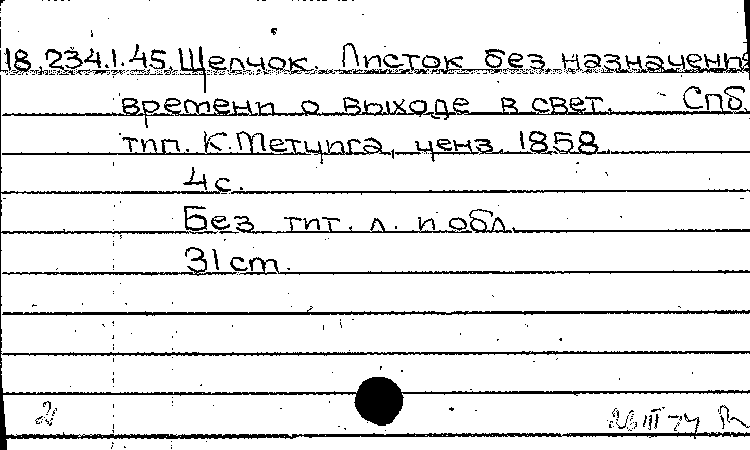 18.234.1.45. Щелчок. Листок без назначения
времени о выходе в свет. - Спб.
тип. К. Метцига, ценз. 1858.
4 с.
Без тит. л. и обл.
31 cm.
26 III 74